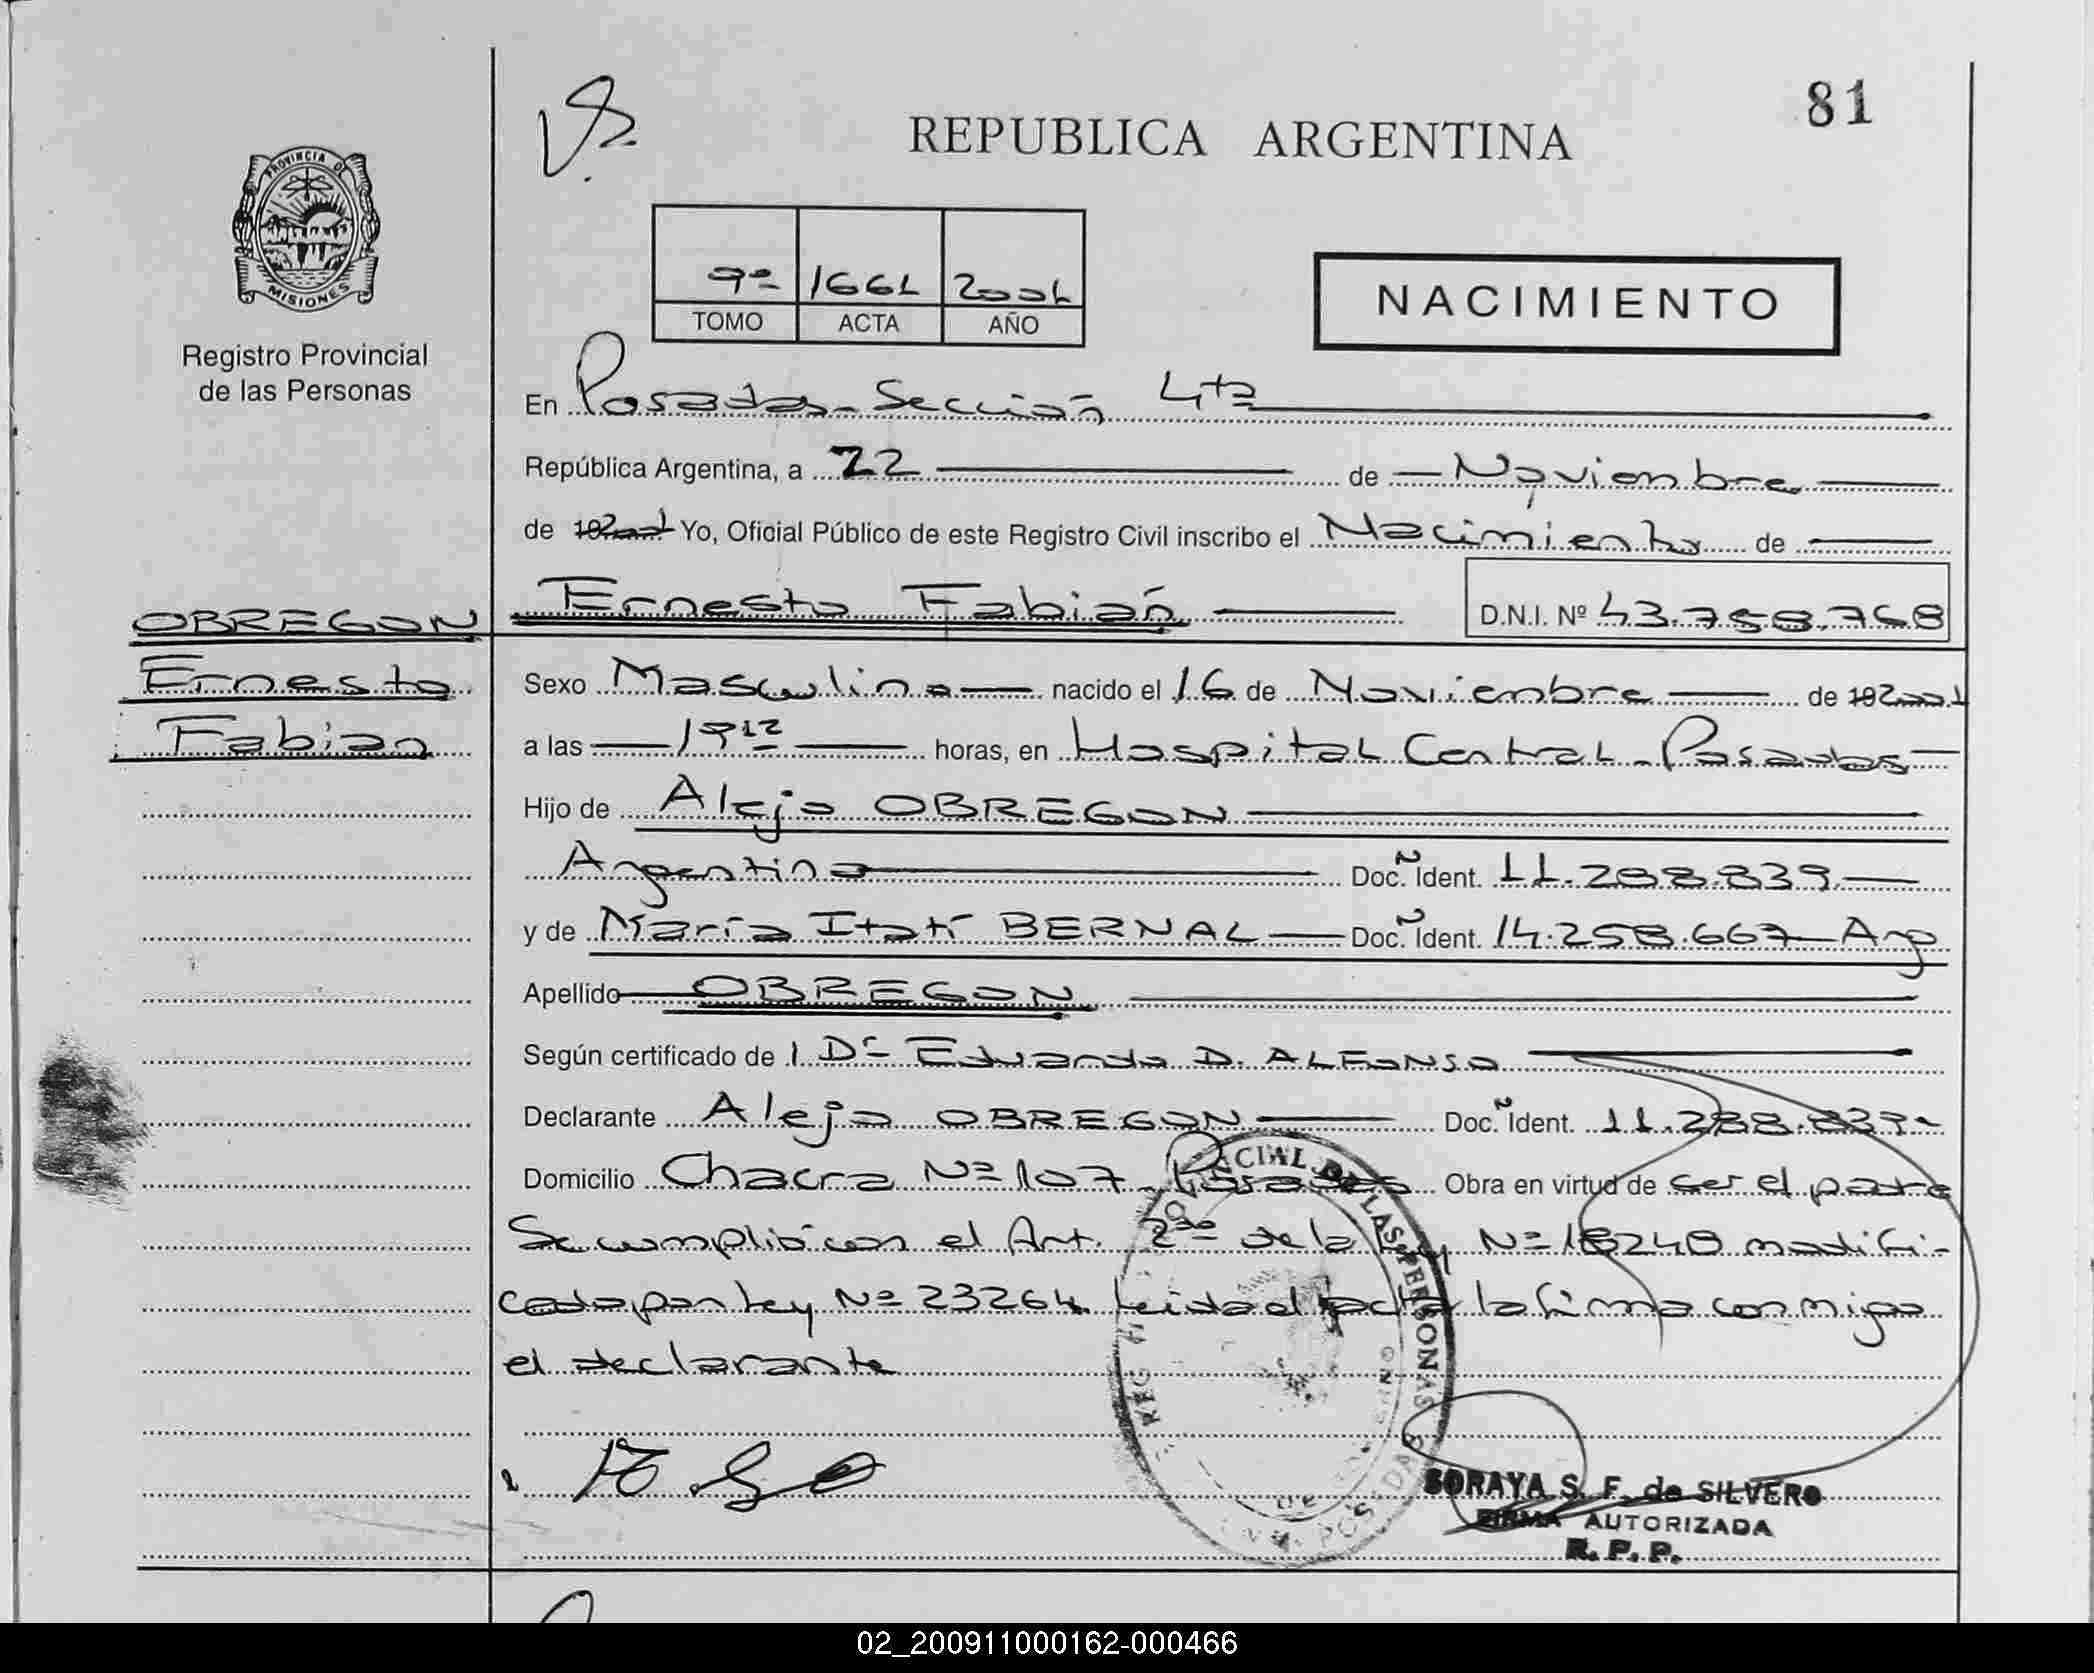 81
REPUBLICA ARGENTINA
PROVINCIA DE
MISIONES
Registro Provincial
de las Personas
9º 1661 2001
TOMO ACTA AÑO
NACIMIENTO
En Posadas - Sección 4ta
República Argentina, a 22 de Noviembre
de 192001 Yo, Oficial Público de este Registro Civil inscribo el Nacimiento de
OBREGON Ernesto Fabián D.N.I. Nº 43.758.768
Ernesto Sexo Masculino nacido el 16 de Noviembre de 192001
Fabian a las 19 12 horas, en Hospital Central - Posadas
Hijo de Alejo OBREGON
Argentino Doc. Ñ Ident. 11.288.839
y de María Itatí BERNAL Doc. Ñ Ident. 14.258.667 Arg
Apellido OBREGON
Según certificado de l Dr Eduardo D. ALFONSO
Declarante Alejo OBREGON Doc. Ñ Ident. 11.288.839
Domicilio Chacra Nº 107 - Posadas Obra en virtud de ser el padre
Se cumplió con el Art. 2do de la Ley Nº 18248 modifi-
cada por Ley Nº 23264. Leida el acta la firma conmigo
el declarante
PROVINCIAL DE LAS PERSONAS
SORAYA S. F. de SILVERO
FIRMA AUTORIZADA
R. P. P.
02_200911000162-000466